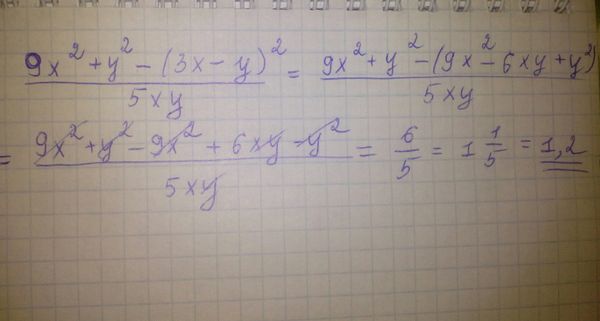 (9x² + y² - (3x - y)²) / 5xy = (9x² + y² - (9x² - 6xy + y²)) / 5xy
= (9x² + y² - 9x² + 6xy - y²) / 5xy = 6/5 = 1 1/5 = 1,2